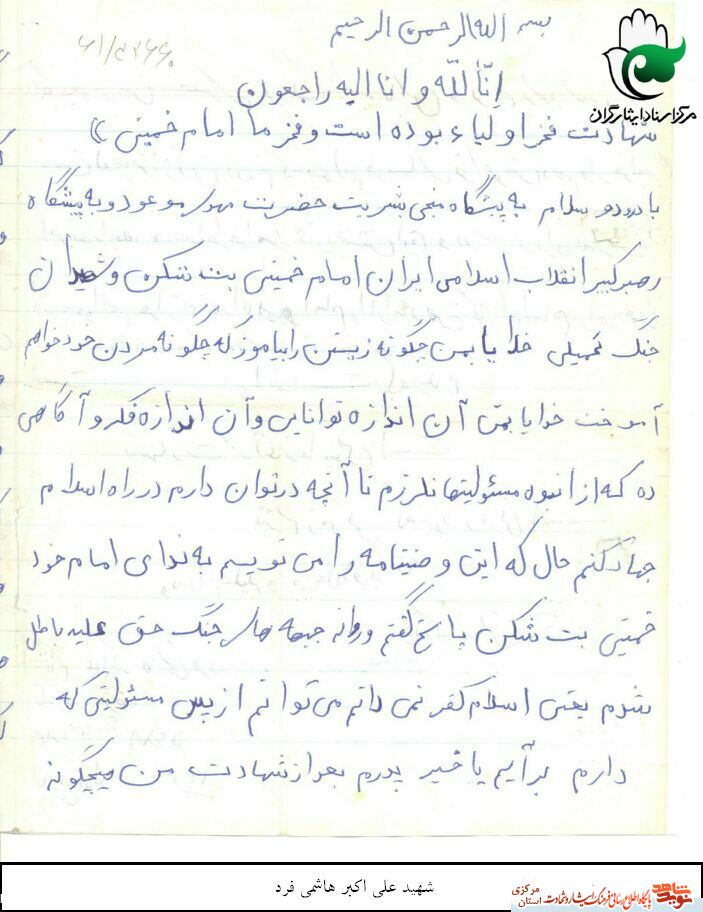 بسم الله الرحمن الرحیم
انّا للّه و انا الیه راجعون
مرکز اسناد ایثارگران
شهادت فخر اولیاء بوده است و فخر ما امام خمینی ))
با درود و سلام به پیشگاه منجی بشریت حضرت مهدی موعود و به پیشگاه
رهبر کبیر انقلاب اسلامی ایران امام خمینی بت شکن و شهیدان
جنگ تحمیلی خدایا بمن چگونه زیستن را بیاموز که چگونه مردن خود خواهم
آموخت خدایا بمن آن اندازه توانایی و آن اندازه فکر و آگاهی
ده که از انبوه مسئولیتها نلرزم تا آنچه در توان دارم در راه اسلام
جهاد کنم حال که این وصیتنامه را می نویسم به ندای امام خود
خمینی بت شکن پاسخ گفتم و روانه جبهه های جنگ حق علیه باطل
شدم یعنی اسلام کفر نمی دانم می توانم از پس مسئولیتی که
دارم برآیم یا خیر پدرم بعد از شهادت من هیچگونه
شهید علی اکبر هاشمی فرد
نوید شاهد
پایگاه اطلاع رسانی فرهنگ ایثار و شهادت
استان مرکزی